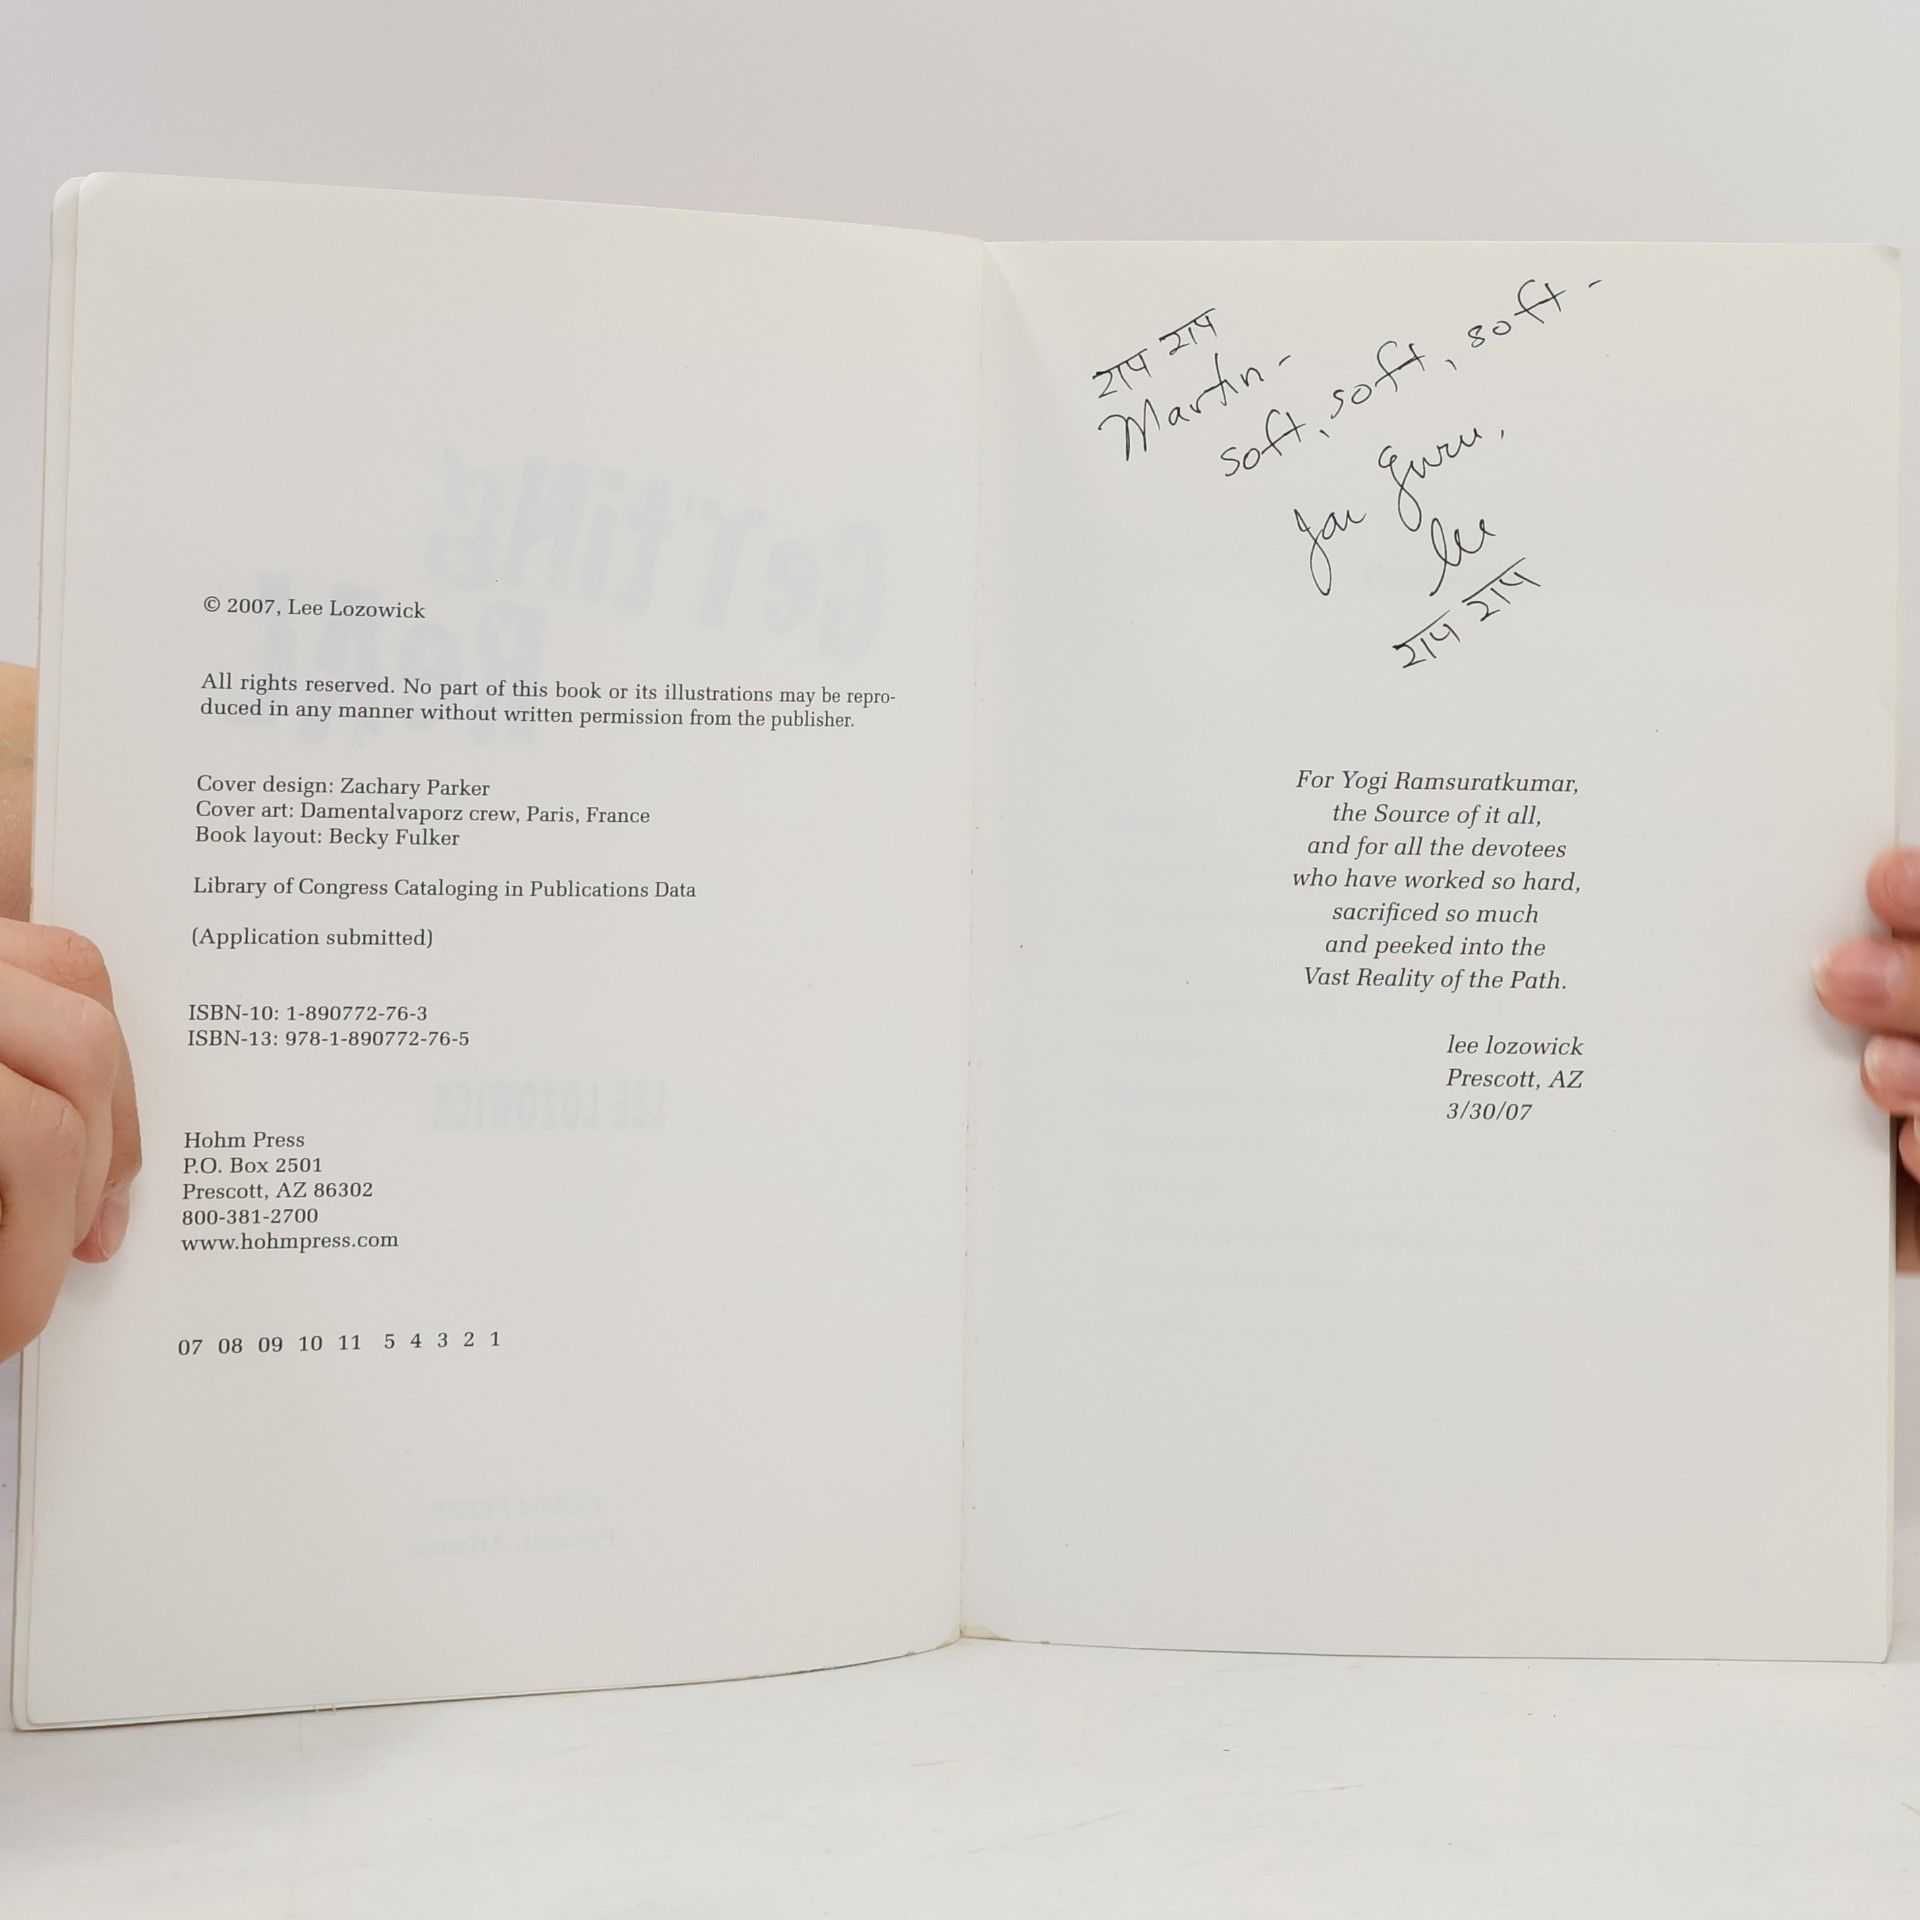 © 2007, Lee Lozowick
All rights reserved. No part of this book or its illustrations may be repro-
duced in any manner without written permission from the publisher.
Cover design: Zachary Parker
Cover art: Damentalvaporz crew, Paris, France
Book layout: Becky Fulker
Library of Congress Cataloging in Publications Data
(Application submitted)
ISBN-10: 1-890772-76-3
ISBN-13: 978-1-890772-76-5
Hohm Press
P.O. Box 2501
Prescott, AZ 86302
800-381-2700
www.hohmpress.com
07 08 09 10 11 5 4 3 2 1
राम राम
Martin -
soft, soft, soft, soft -
Jai Guru,
lee
राम राम
For Yogi Ramsuratkumar,
the Source of it all,
and for all the devotees
who have worked so hard,
sacrificed so much
and peeked into the
Vast Reality of the Path.
lee lozowick
Prescott, AZ
3/30/07